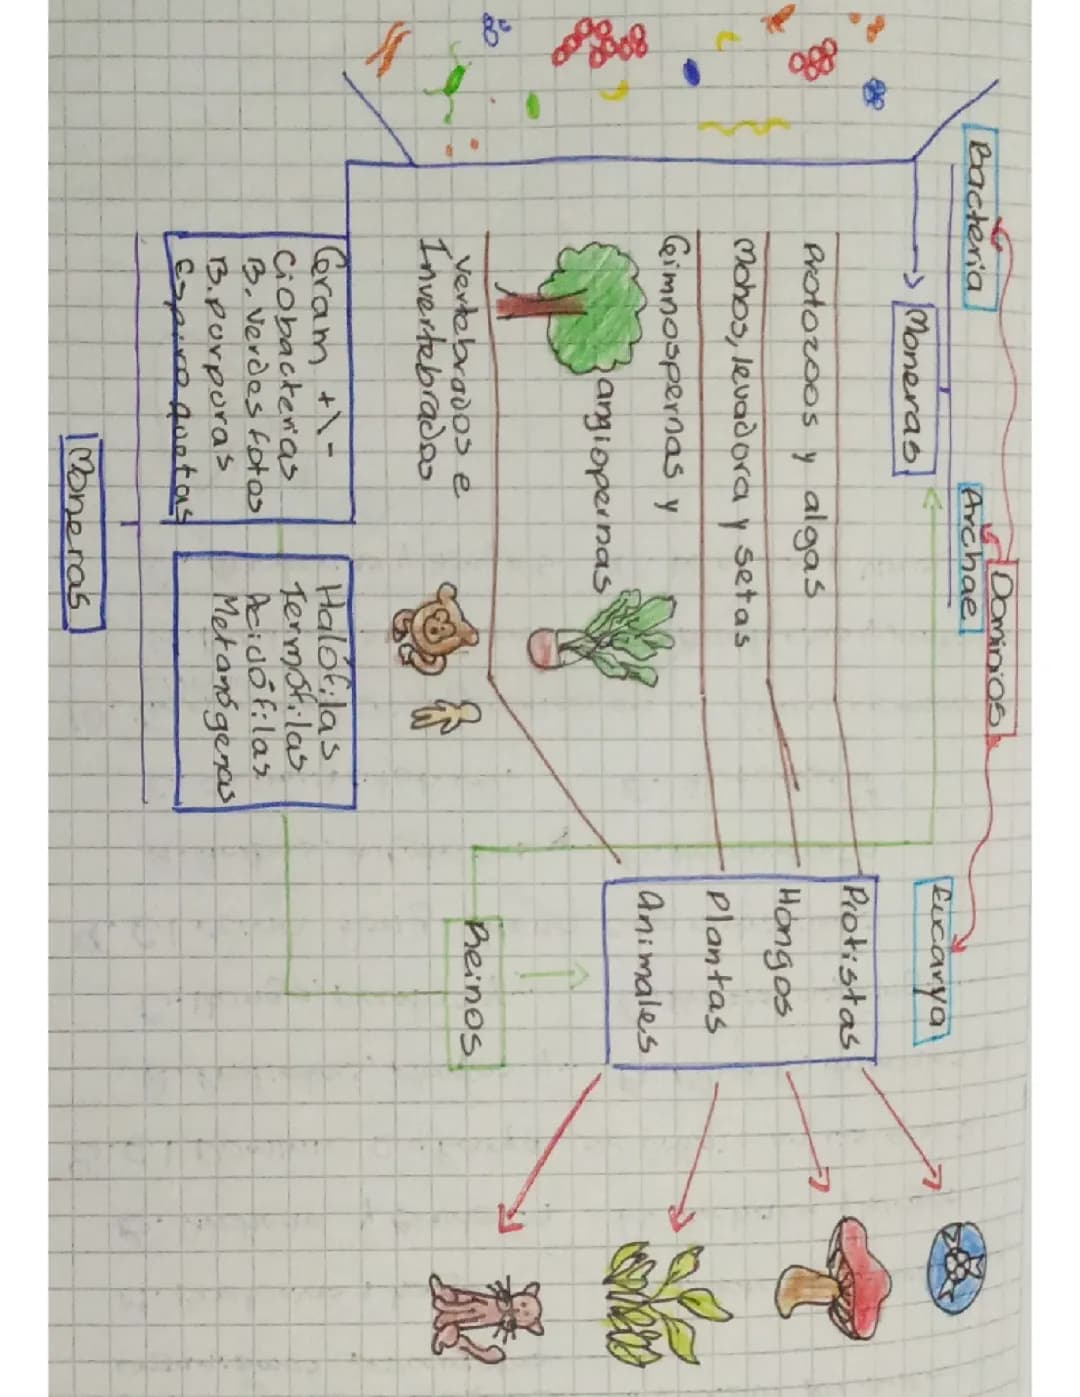 Dominios
Bacteria
Archae
Eucarya
Moneras
Protozoos y algas
Mohos, levadora y setas
Gimnospernas y
angiopernas
Vertebrados e
Invertebrados
Piotistas
Hongos
Plantas
Animales
Reinos
Gram +\-
Ciobacterias
B. Verdes fotos
B. purpuras
Espiroquetas
Halófilas
Termófilas
Acidófilas
Metanógenas
Moneras